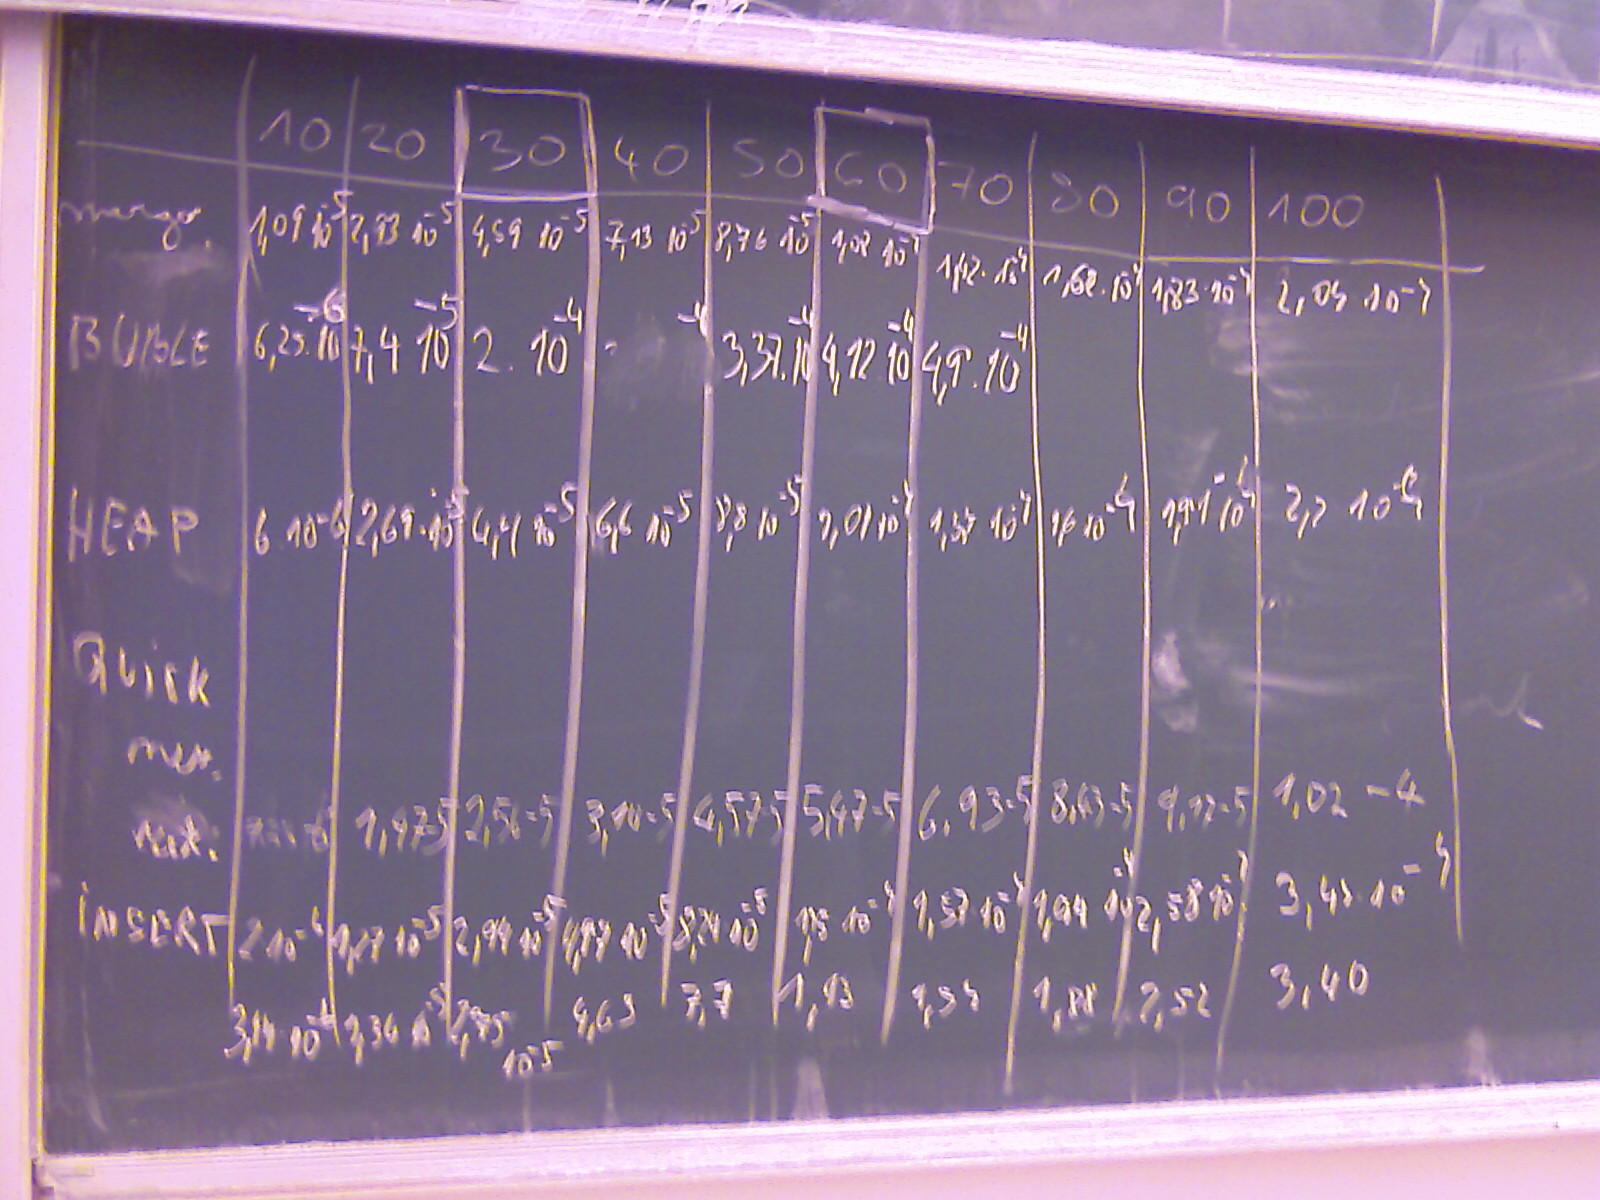 10 20 30 40 50 60 70 80 90 100
merge 1,09 10^-5 2,93 10^-5 4,59 10^-5 7,13 10^-5 8,76 10^-5 1,08 1,42 · 10^-4 1,62 · 10^-4 1,83 · 10^-4 2,04 10^-4
BUBLE 6,25 · 10^-6 7,4 10^-5 2 · 10^-4 -4 3,37 · 10^-4 4,12 · 10^-4 4,9 · 10^-4
HEAP 6 10^-6 2,69 · 10^-5 4,4 10^-5 6,6 10^-5 8,8 10^-5 1,01 10^-4 1,37 10^-4 1,6 10^-4 1,91 10^-4 2,2 10^-4
Quick
1,47-5 2,56-5 3,10-5 4,57-5 5,47-5 6,93-5 8,43-5 9,12-5 1,02 -4
INSERT 2 10^-6 1,27 10^-5 2,94 10^-5 10^-5 8,24 10^-5 10^-4 1,57 10^-4 1,94 10^-4 2,58 10^-4 3,43 · 10^-4
3,14 · 10^-6 1,36 10^-5 2,75 4,63 7,7 1,13 1,54 1,88 2,52 3,40
10^-5